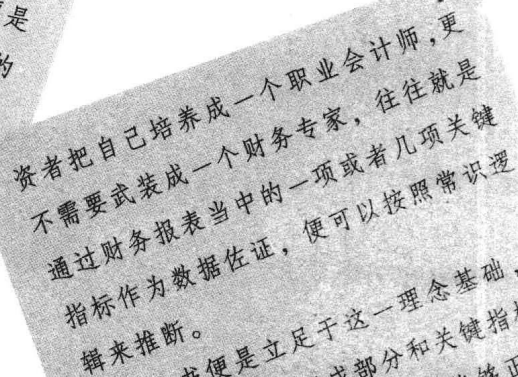 是
的
资者把自己培养成一个职业会计师，更
不需要武装成一个财务专家，往往就是
通过财务报表当中的一项或者几项关键
指标作为数据佐证，便可以按照常识逻
辑来推断。
书便是立足于这一理念基础，
成部分和关键指标